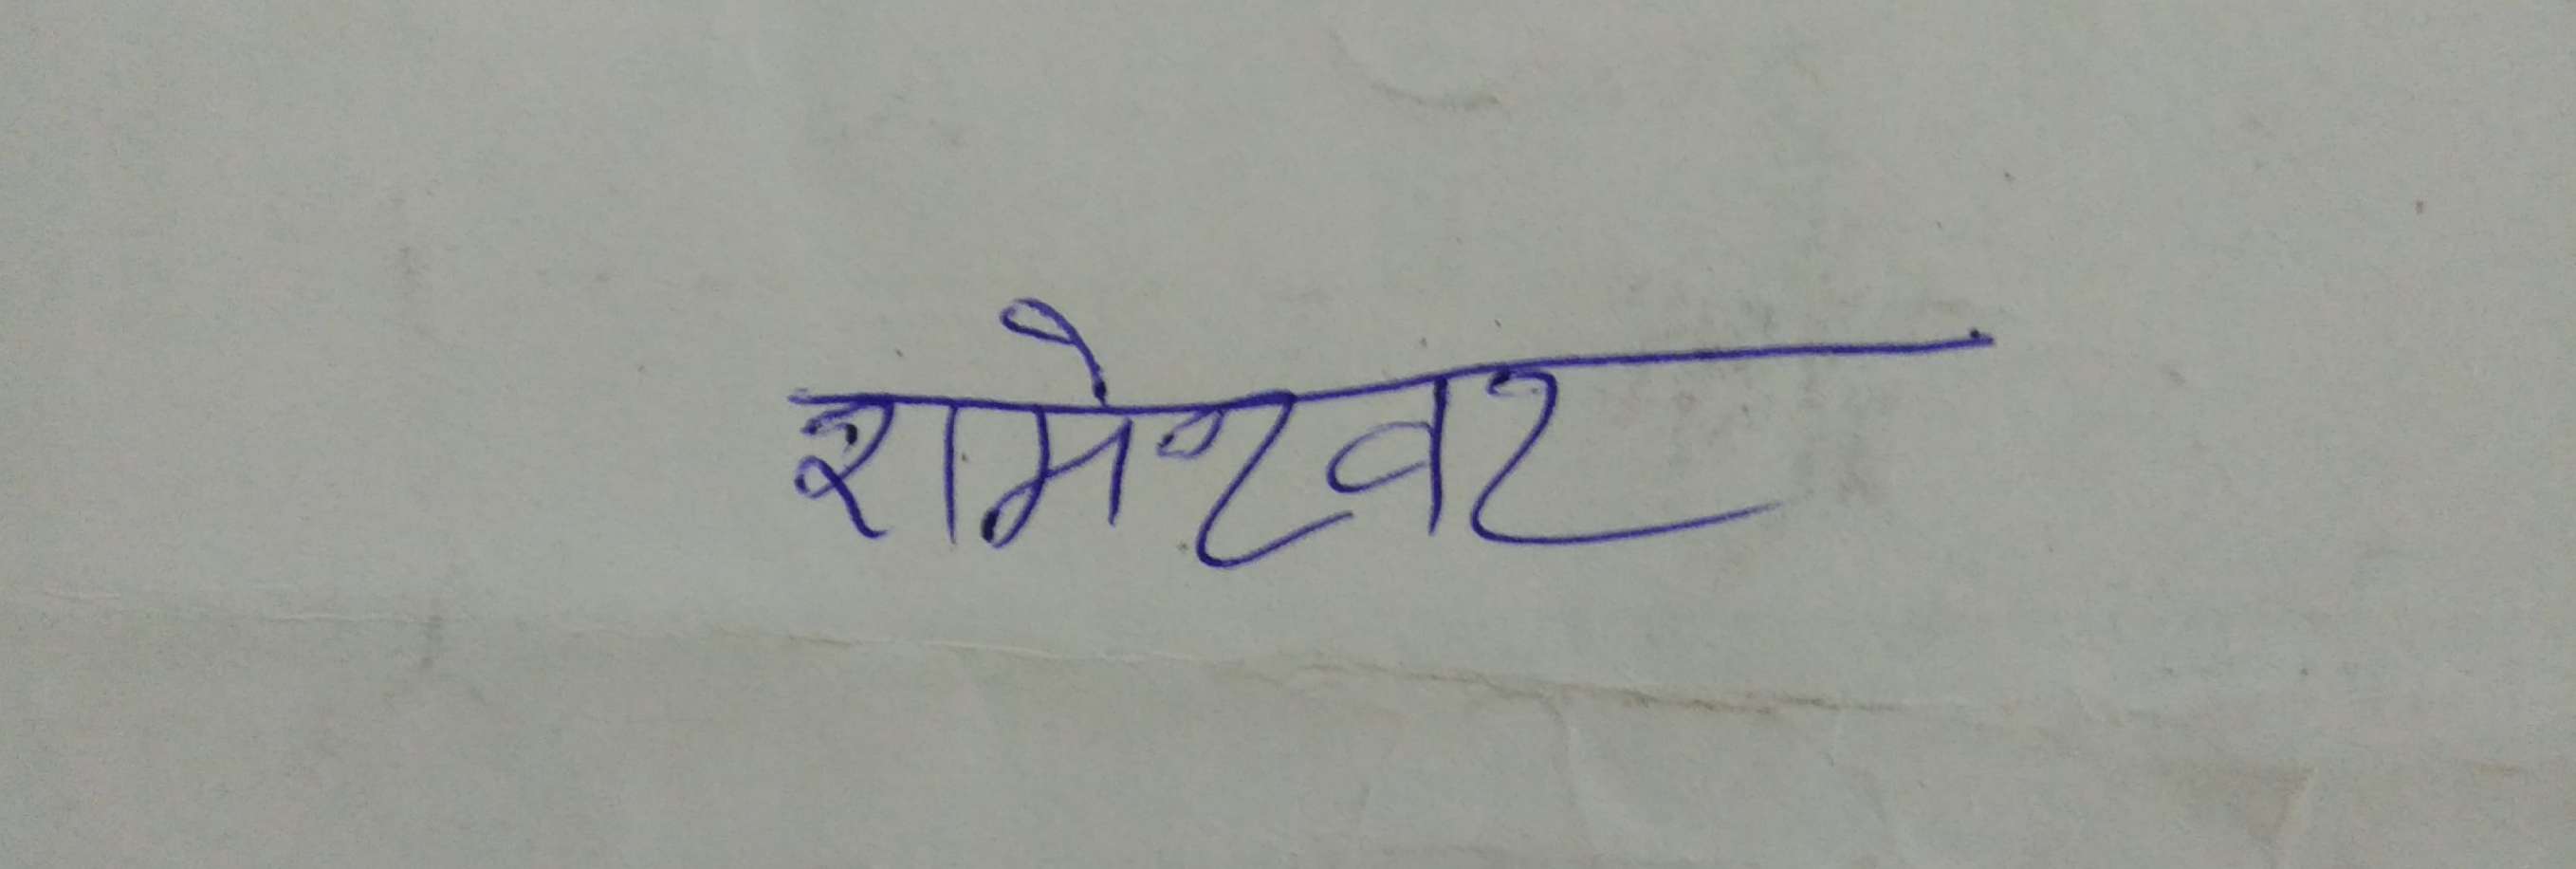 रामेश्वर